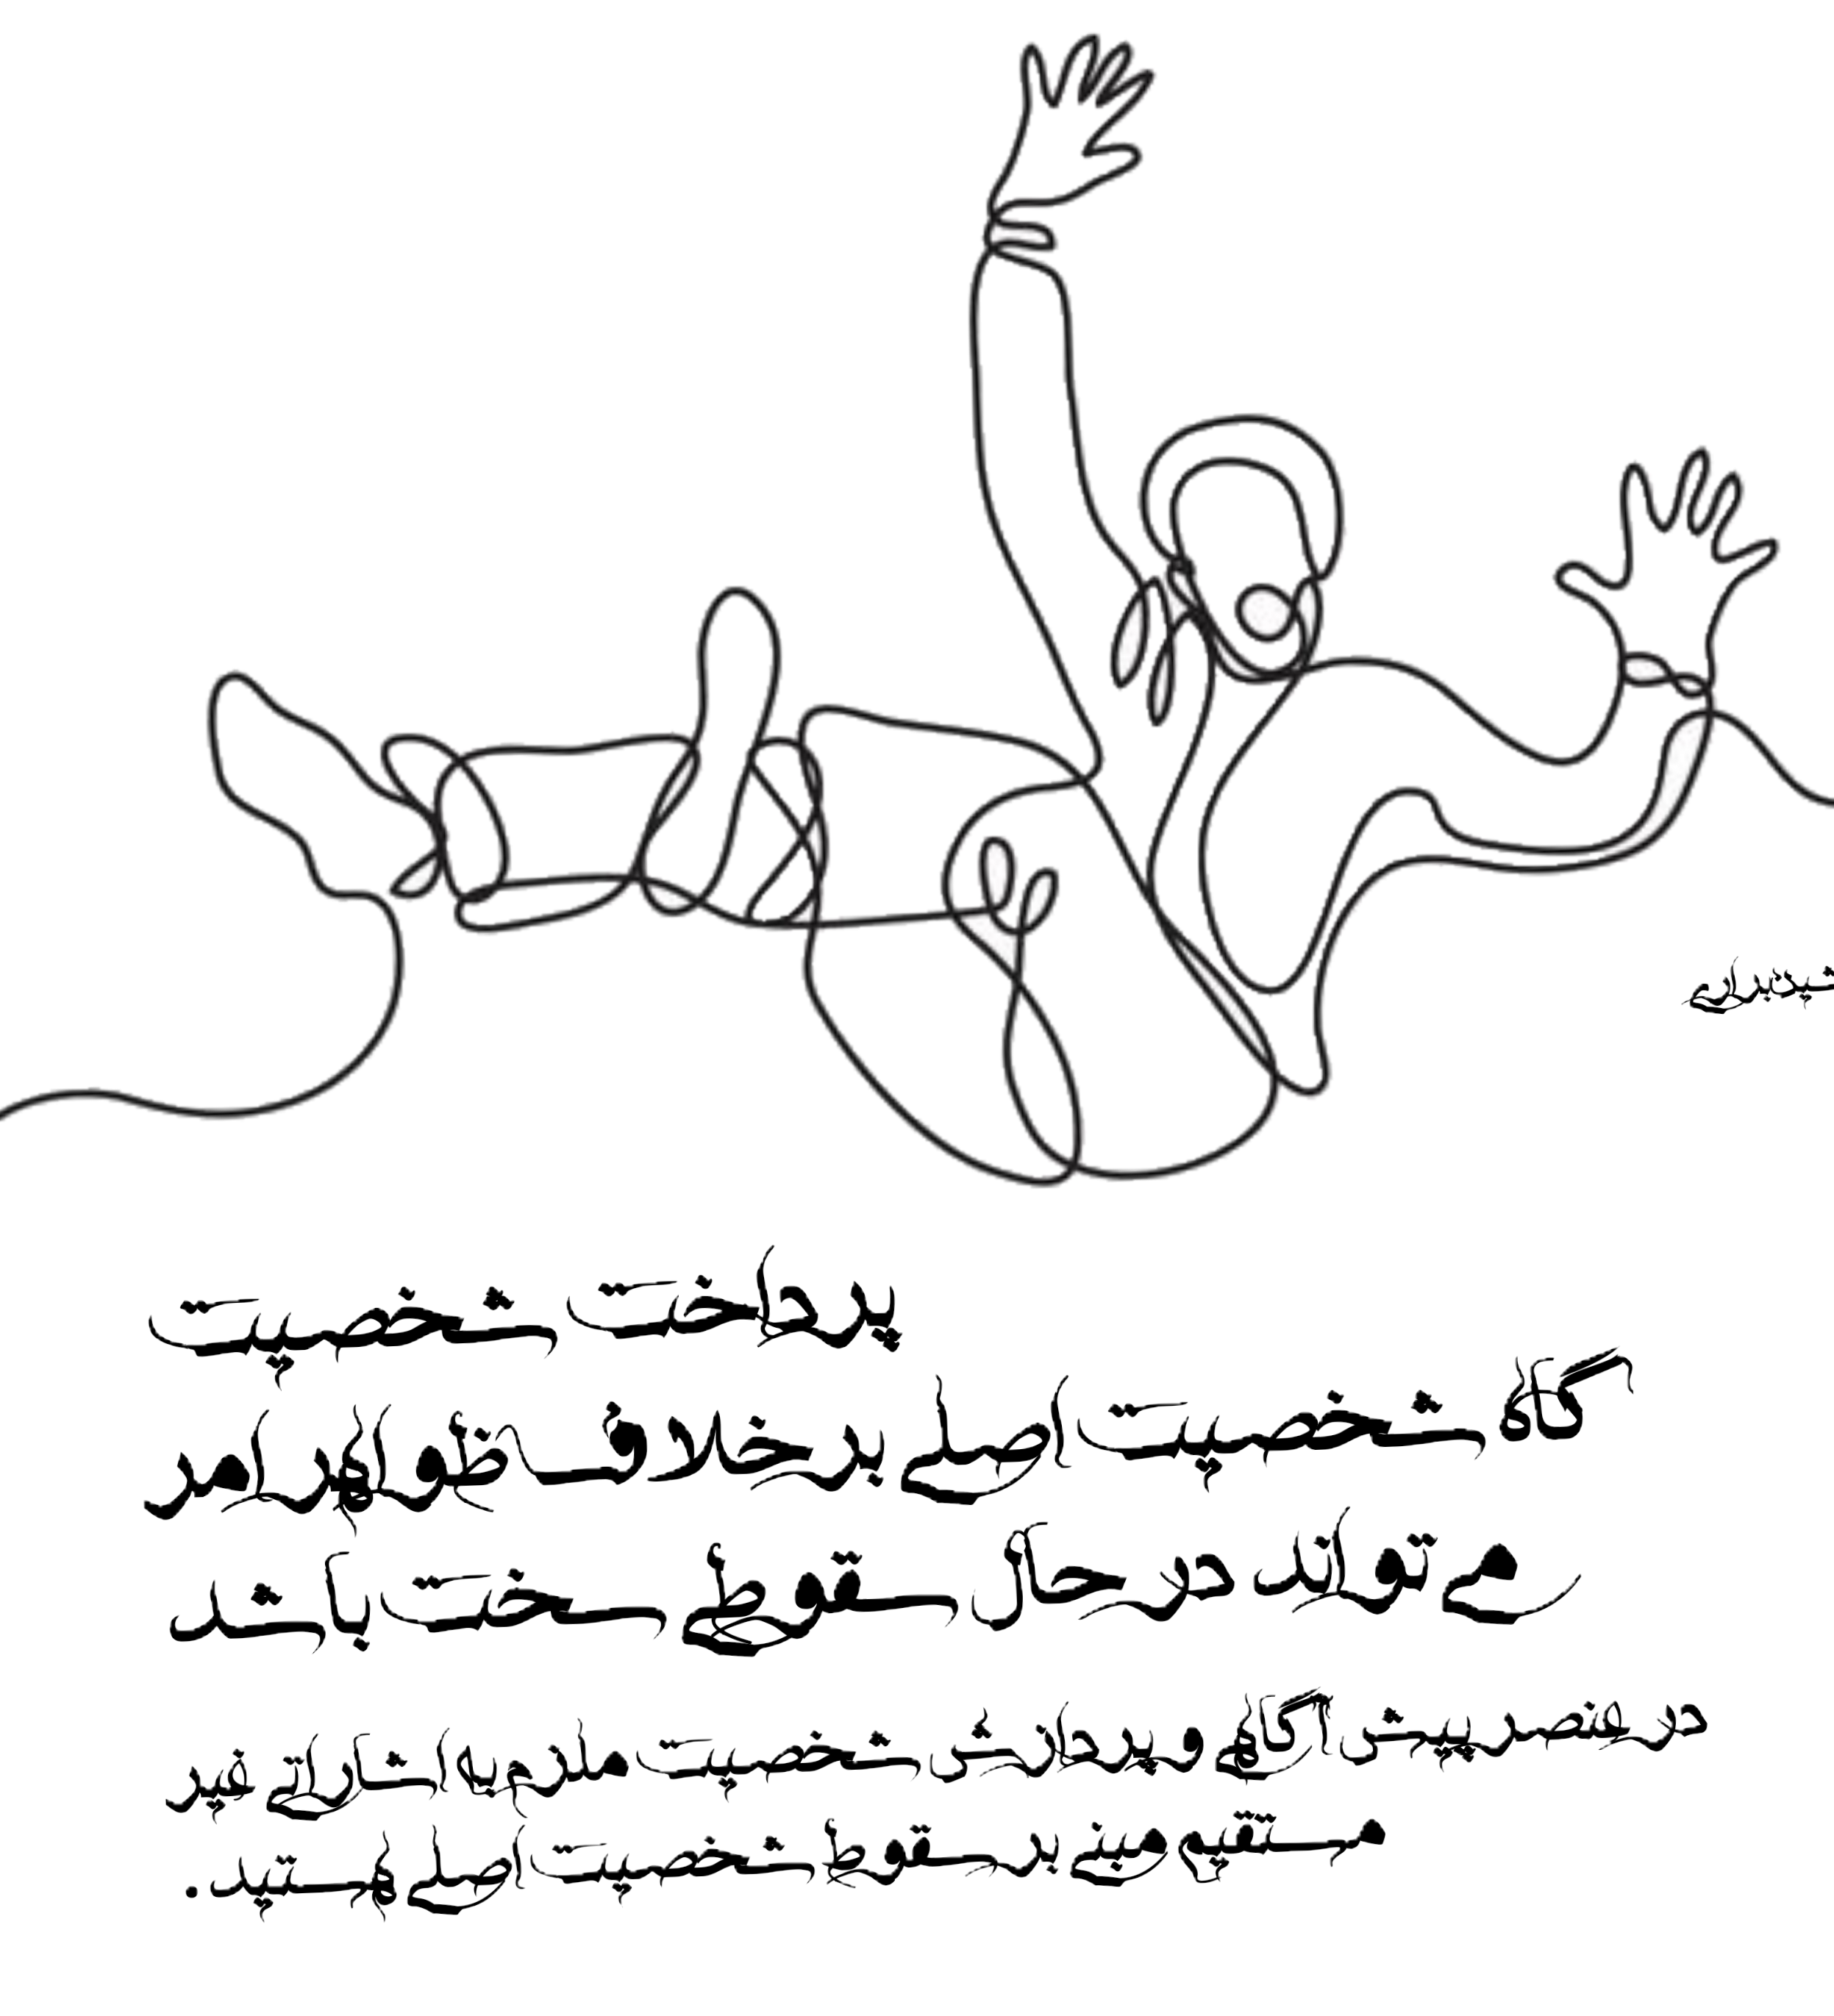 پرداخت شخصیت
گاه شخصیت اصلی بر خلاف ظواهر امر
می تواند در حال سقوط سخت باشد
در عنصر پیش آگهی و پردازش شخصیت ملزم به اشاراتی غیر
مستقیم مبنی بر سقوط شخصیت اصلی هستید.